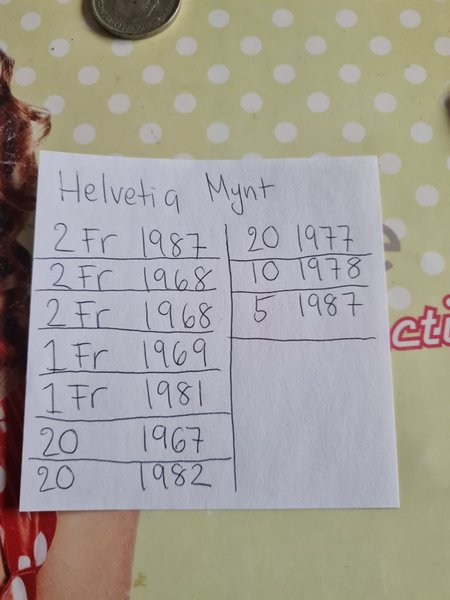 Helvetia Mynt
2 Fr 1987
2 Fr 1968
2 Fr 1968
1 Fr 1969
1 Fr 1981
20 1967
20 1982
20 1977
10 1978
5 1987
cti